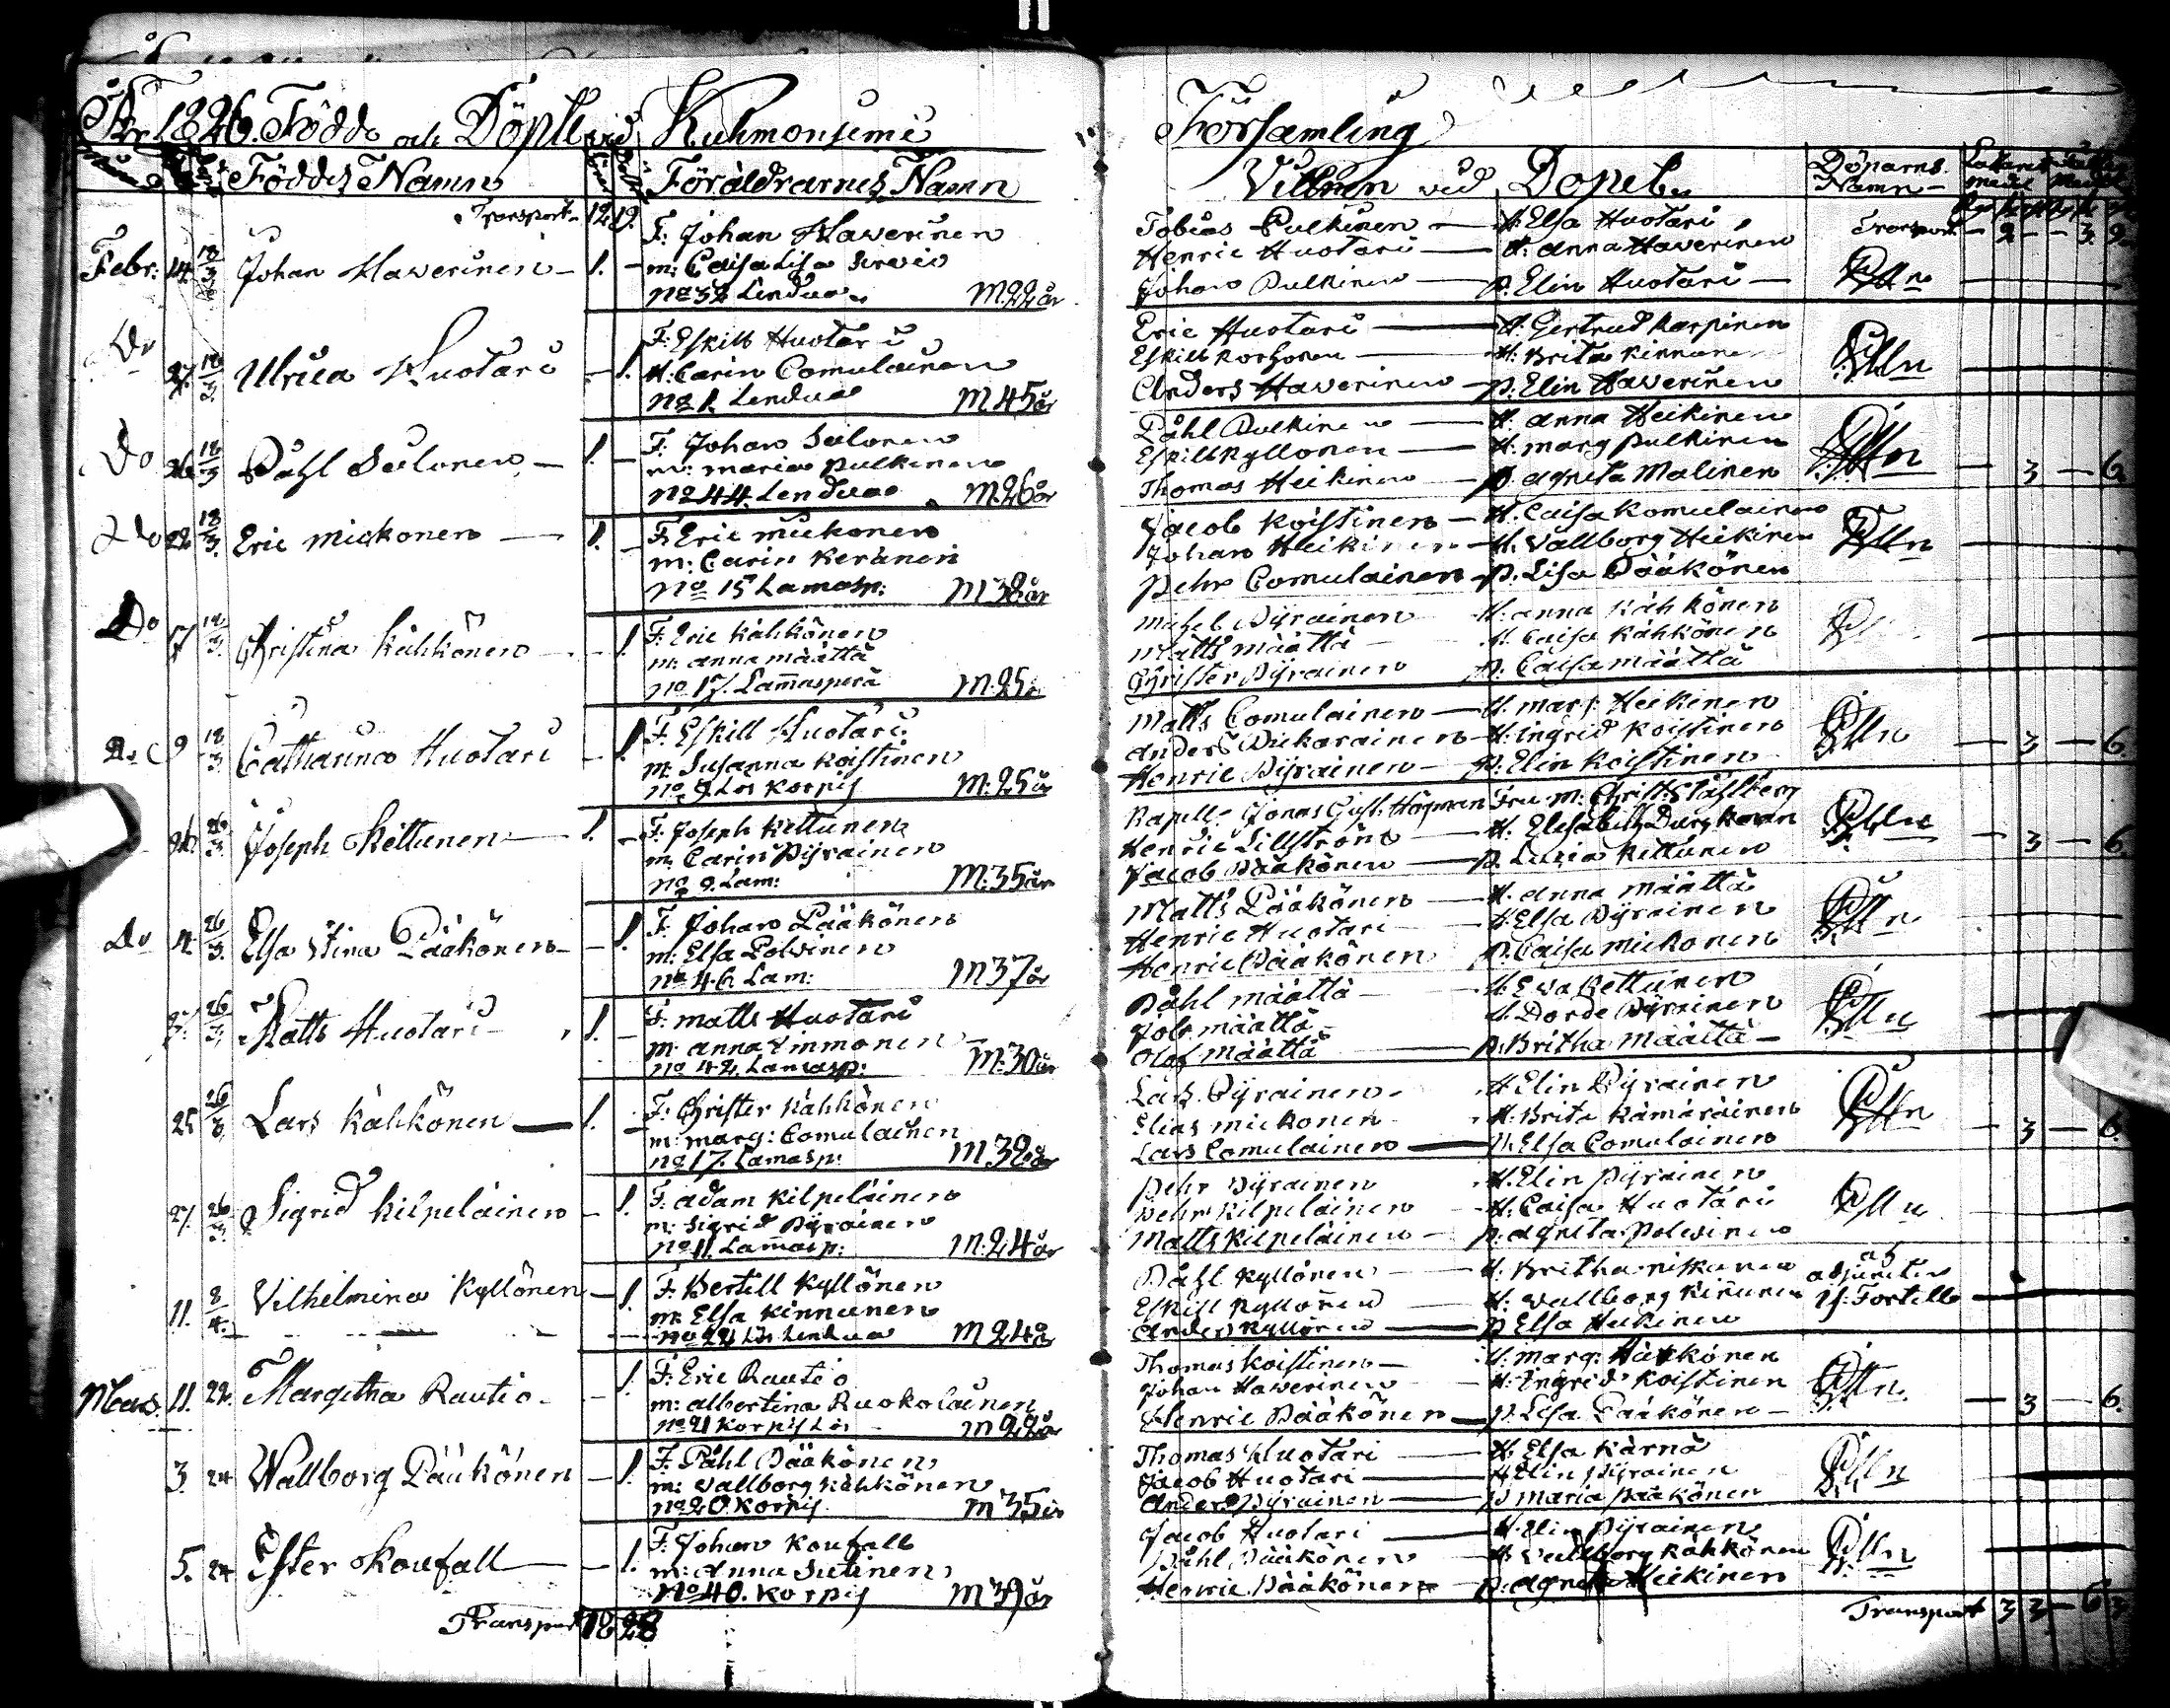 År 1826. Födde och Döpte vid Kuhmoniemi
Födde's Namn Föräldrarnes Namn
Transport 12 19.
Febr: 14 18/3 Johan Haverinen 1. F: Johan Haverinen
m: Caisa Lisa
No 32 Lendua M 22 år
Do 27. 18/3 Ulrica Huotari 1. F: Eskill Huotari
H: Carin Comulainen
No 1 Lendua M 45 år
Do 26 18/3 Påhl Sulonen 1. F: Johan Sulonen
m: Maria Pulkinen
No 44. Lendua M. 26 år
Do 22 18/3. Eric Mickonen 1. F: Eric Mickonen
m: Carin Keränen
No 15 Lamasp: M 38 år
Do 17 18/3. Christina Kähkönen 1. F: Eric Kähkönen
m: anna Määttä
No 17. Lammasperä M. 25 år
Do 9 18/3. Catharina Huotari 1. F: Eskill Huotari
m: Susanna Koistinen
No 9 Lös Korpij M: 25 år
26 26/3. Joseph Kettunen 1. F: Joseph Kettunen
m: Carin Pyrainen
No 9. Lam: M: 35 år
Do 4 26/3. Elsa Stina Pääkönen 1. F: Johan Pääkönen
m: Elsa Polvinen
No 46 Lam: M 37 år
26/3. Matts Huotari 1. F: Matts Huotari
m: anna Timmonen
No 42 Lamasp: M: 30 år
25 26/3 Lars Kähkönen 1. F: Christer Kähkönen
m: marg: Comulainen
No 17. Lamasp: M 32 år
27. 26/3. Sigrid Kilpeläinen 1. F: adam Kilpeläinen
m: Sigrid Pyrainen
No 11. Lammasp: M: 24 år
11. 8/4. Vilhelmina Kyllönen 1. F: Bertill Kyllönen
m: Elsa Kinnunen
No 22 Lös Lendua M 24 år
Mars. 11. 22. Margetha Rautio 1. F: Eric Rautio
m: albertina Ruokolainen
No 21 Korpij Lös M 22 år
3. 24 Wallborg Pääkönen 1. F: Påhl Pääkönen
m: Wallborg Kähkönen
No 20. Korpij. M 35 år
5. 24 Ester Koufall 1. F: Johan Koufall
m: Anna Sutinen
No 40. Korpij M 39 år
Transport 18 28
Församling
Vittnen vid Dopet. Döparns Namn
Tobias Pulkinen H: Elsa Huotari Transport 2 3 9
Henric Huotari H: anna Haverinen
Johan Pulkinen p. Elin Huotari
Eric Huotari H: Gertrud Karpinen
Eskill Korhonen H: Brita Kinnunen
Anders Haverinen p. Elin Haverinen
Påhl Pulkinen H. anna Heikinen
Eskill Kyllonen H: marg Pulkinen
Thomas Heikinen p agneta Malinen 3 6
Jacob Koistinen H. Caisa Komulainen
Johan Heikinen H. Vallborg Heikinen
Pehr Comulainen p. Lisa Pääkönen
Michel Pyrainen H. anna Kähkönen
Matts Määttä H. Caisa Kähkönen
Christer Pyrainen p. Caisa Määttä
Matts Comulainen H. marg: Heikinen
anders Pickarainen H. Ingrid Koistinen
Henric Pyrainen p. Elin Koistinen 3 6.
Kapell. Jonas Gust. Hagman Fru M: Christ: Ståhlberg
Henric Lillström H. Elisabeth Durchman
Jacob Pääkönen p. Lucia Kettunen 3 6.
Matts Pääkönen H. anna Määttä
Henric Huotari H. Elsa Pyrainen
Henric Pääkönen p. Caisa Mickonen
Påhl Määttä H. Eva Kettunen
Job Määttä H. Dorde Pyrainen
Olof Määttä p. Britha Määttä
Lars Pyrainen H. Elin Pyrainen
Elias Mickonen H. Brita Kämäräinen
Lars Comulainen p. Elsa Comulainen 3 6.
Pehr Pyrainen H. Elin Pyrainen
Pehr Kilpeläinen H. Caisa Huotari
Matts Kilpeläinen p. agneta Polvinen
Påhl Kyllönen H. Britha Niskanen af
Eskill Kyllönen H. Wallborg Kinnunen adjuncten
Anders Kyllönen p Elsa Heikinen
Thomas Koistinen H. marg: Kähkönen
Johan Haverinen H. Ingrid Koistinen
Henric Pääkönen p. Lisa Pääkönen 3 6.
Thomas Huotari H. Elsa Kärnä
Jacob Huotari H. Elin Pyrainen
Anders Pyrainen p maria Pääkönen
Jacob Huotari H. Elin Pyrainen
Påhl Pääkönen H. Vallborg Kähkönen
Henric Pääkönen p. agneta Heikinen
Transport 3 3 6 3